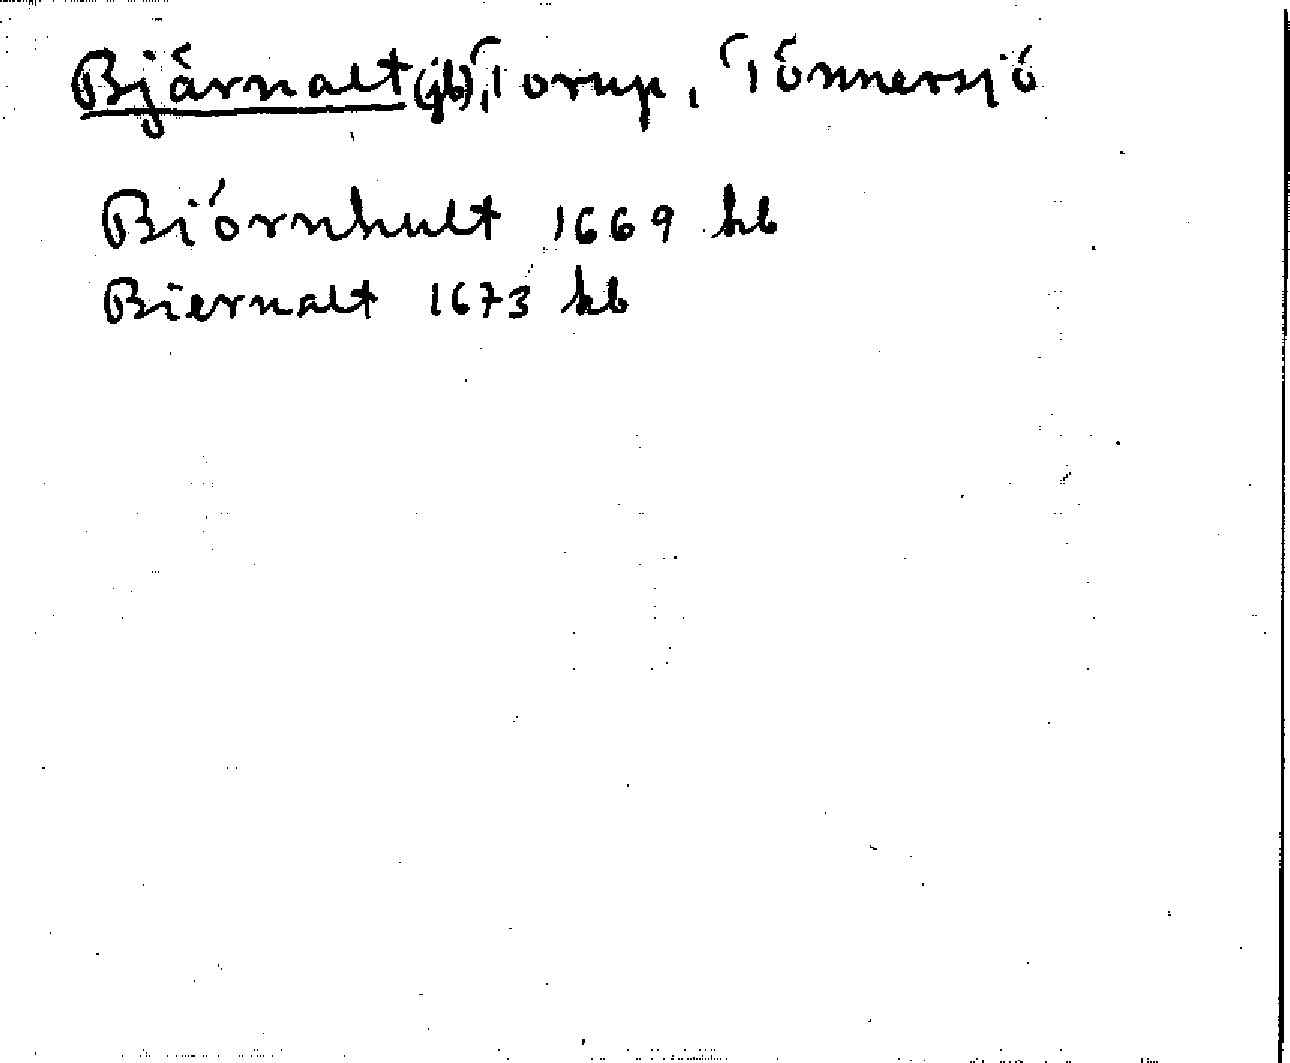 Bjärnalt (jb), Torup, Tönnersjö
Biörnhult 1669 kb
Biernalt 1673 kb